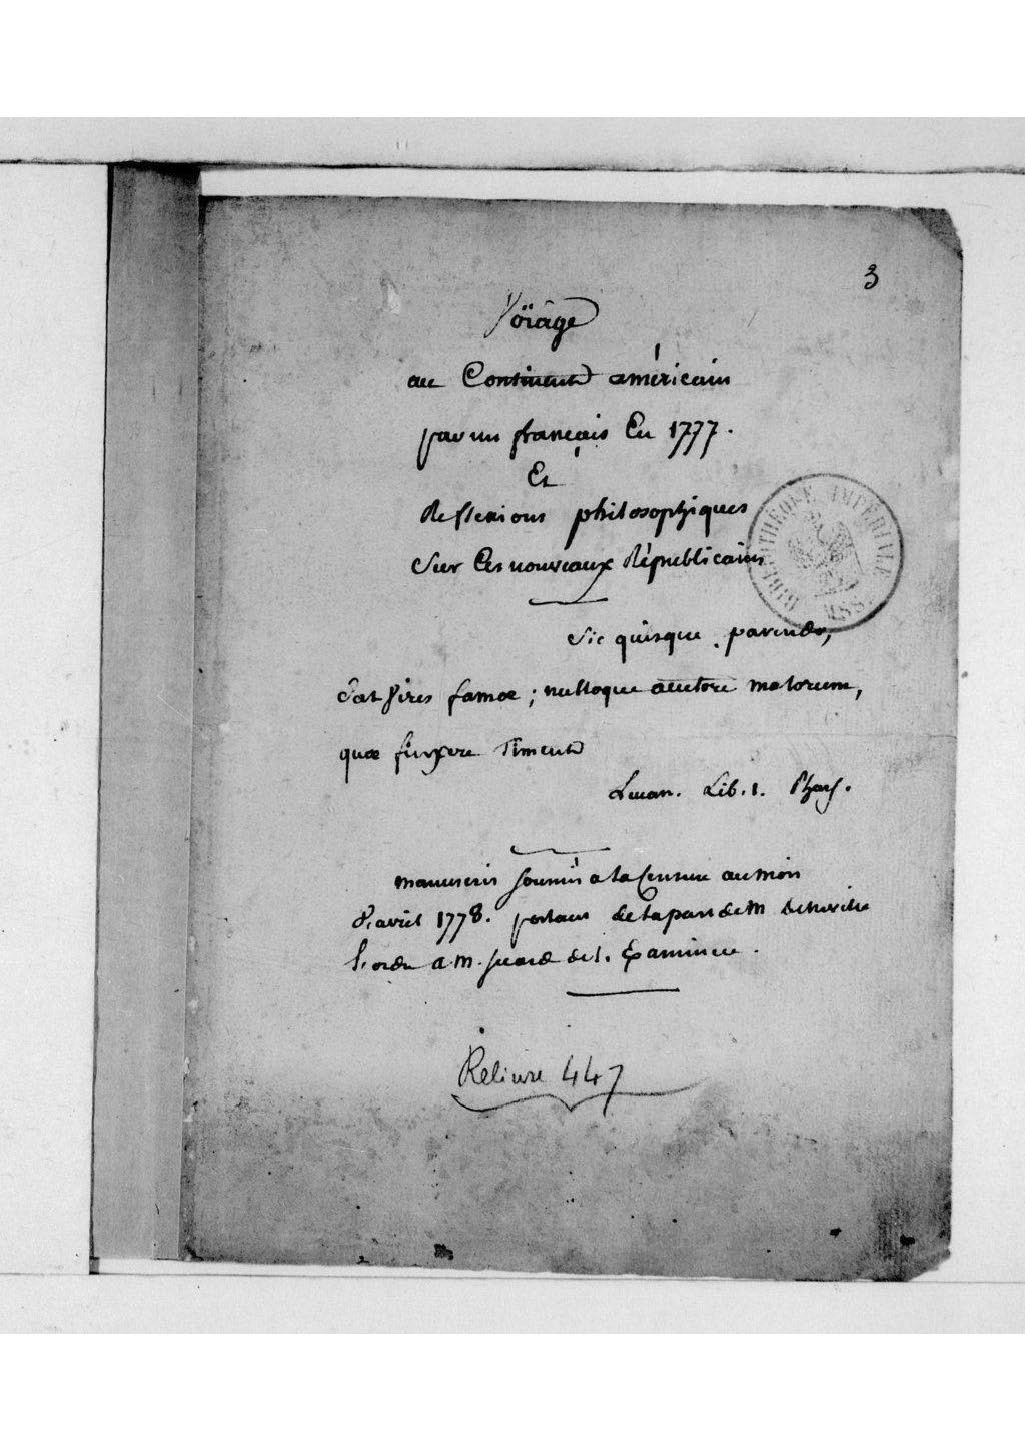 3
Voïâge
au Continent américain
par un français En 1777.
Et
Reflexions philosophiques
Sur Ces nouveaux Républicains
BIBLIOTHÈQUE IMPÉRIALE MSS.
Sic quisque pavendo,
Dat Vires famae; nulloque auctore malorum,
quae finxere Timent
Lucan. Lib. 1. Phars.
manuscrit soumis a la Censure au mois
d'avril 1778. portant de la part de M. de
l'ordre a M. Suard de l'Examiner.
Reliure 447